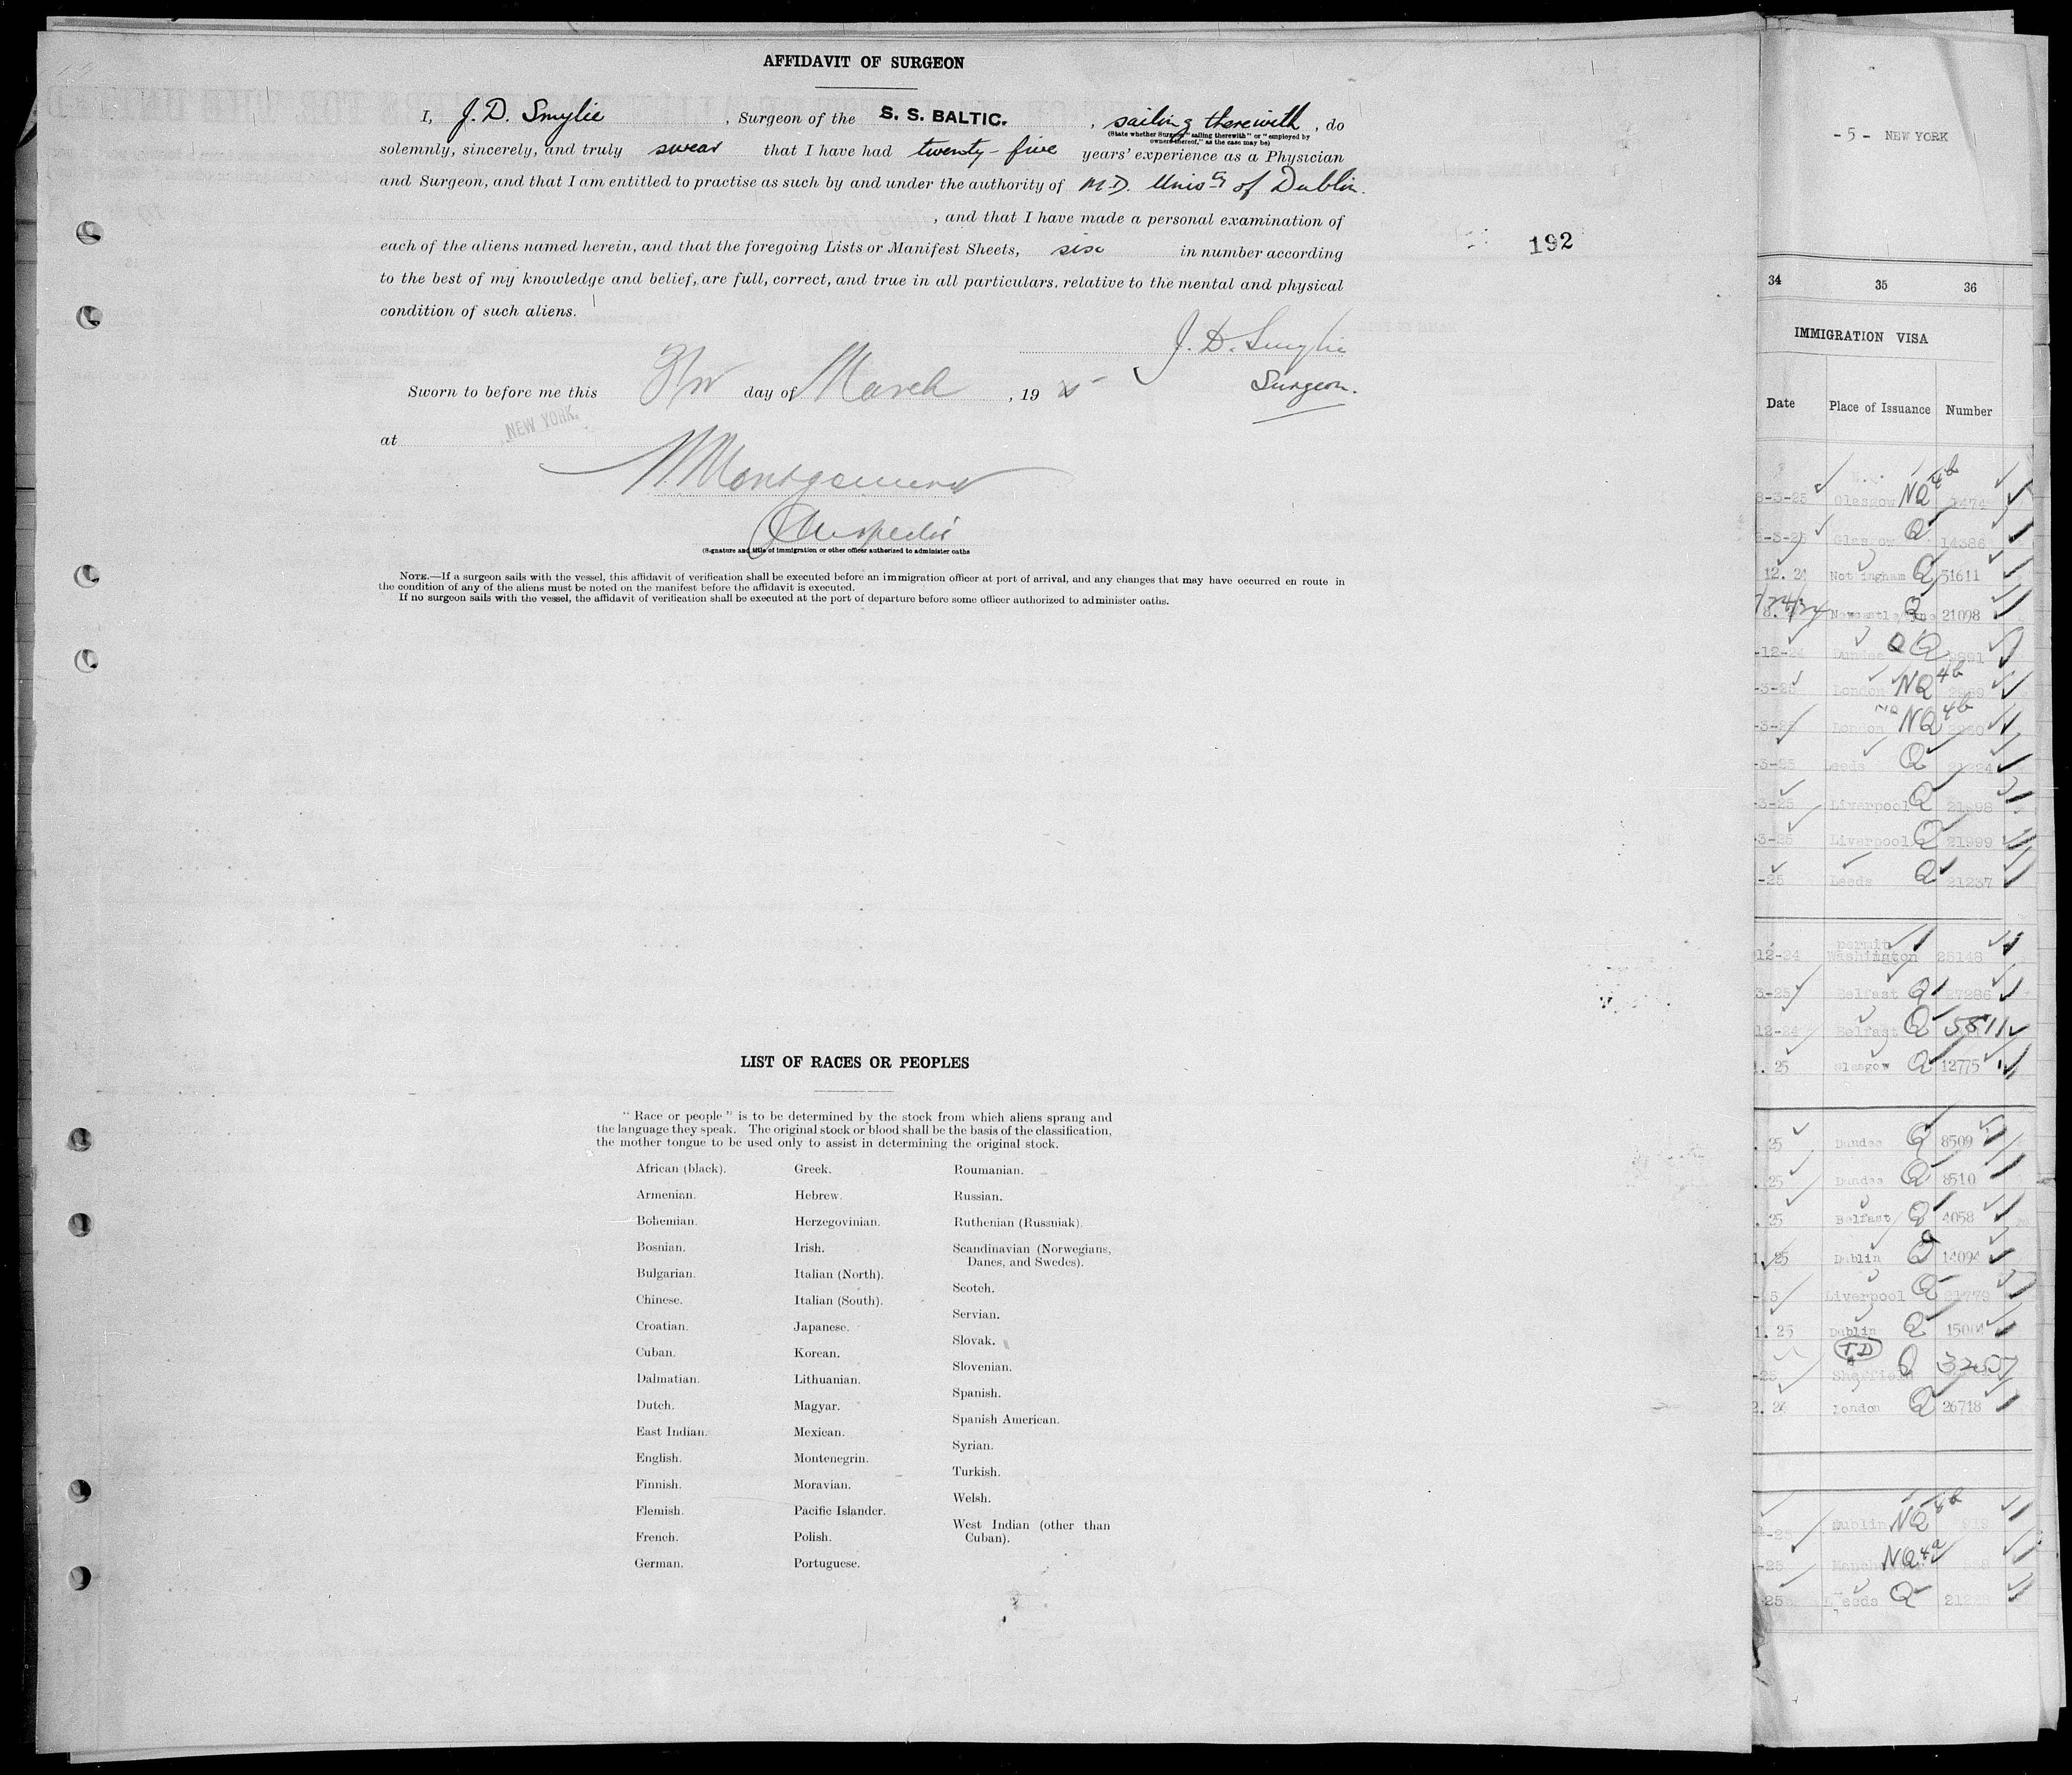 AFFIDAVIT OF SURGEON
I, J. D. Smylie , Surgeon of the S. S. BALTIC. , sailing therewith , do
(State whether Surgeon "sailing therewith" or "employed by
owners thereof," as the case may be)
solemnly, sincerely, and truly swear that I have had twenty-five years' experience as a Physician
and Surgeon, and that I am entitled to practise as such by and under the authority of M.D. Univsty of Dublin.
, and that I have made a personal examination of
each of the aliens named herein, and that the foregoing Lists or Manifest Sheets, six in number according
to the best of my knowledge and belief, are full, correct, and true in all particulars. relative to the mental and physical
condition of such aliens.
192
J. D. Smylie
Surgeon.
Sworn to before me this day of March , 19
at NEW YORK.
Montgomery
Inspector
(Signature and title of immigration or other officer authorized to administer oaths
NOTE.—If a surgeon sails with the vessel, this affidavit of verification shall be executed before an immigration officer at port of arrival, and any changes that may have occurred en route in
the condition of any of the aliens must be noted on the manifest before the affidavit is executed.
If no surgeon sails with the vessel, the affidavit of verification shall be executed at the port of departure before some officer authorized to administer oaths.
LIST OF RACES OR PEOPLES
"Race or people" is to be determined by the stock from which aliens sprang and
the language they speak. The original stock or blood shall be the basis of the classification,
the mother tongue to be used only to assist in determining the original stock.
African (black).
Armenian.
Bohemian.
Bosnian.
Bulgarian.
Chinese.
Croatian.
Cuban.
Dalmatian.
Dutch.
East Indian.
English.
Finnish.
Flemish.
French.
German.
Greek.
Hebrew.
Herzegovinian.
Irish.
Italian (North).
Italian (South).
Japanese.
Korean.
Lithuanian.
Magyar.
Mexican.
Montenegrin.
Moravian.
Pacific Islander.
Polish.
Portuguese.
Roumanian.
Russian.
Ruthenian (Russniak).
Scandinavian (Norwegians,
Danes, and Swedes).
Scotch.
Servian.
Slovak.
Slovenian.
Spanish.
Spanish American.
Syrian.
Turkish.
Welsh.
West Indian (other than
Cuban).
- 5 - NEW YORK
34 35 36
IMMIGRATION VISA
Date Place of Issuance Number
8-3-25 Glasgow NQ 4b
3-25 Glasgow Q 14386
12. 24 Nottingham Q 51611
Newcastle Q 21098
-12-24 Dundee Q
-3-25 London NQ 4b
-3-25 London NQ 4b
-3-25 Leeds Q
-3-25 Liverpool Q 21998
-3-25 Liverpool Q 21999
-25 Leeds Q 21237
12-24 permit Washington 25148
3-25 Belfast Q
12-24 Belfast Q 5811
. 25 Glasgow Q 12775
. 25 Dundee Q 8509
. 25 Dundee Q 8510
. 25 Belfast Q 4058
. 25 Dublin Q 14094
Liverpool Q
1. 25 Dublin Q
TD
-25 Sheffield Q
2. 24 London Q 26718
-25 Dublin NQ
-25 NQ 4a
-25 Leeds Q